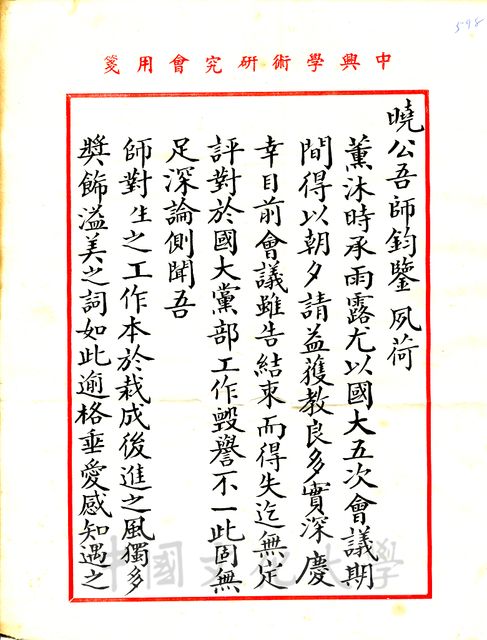 598
中興學術研究會用箋
曉公吾師鈞鑒夙荷
薰沐時承雨露尤以國大五次會議期
間得以朝夕請益獲教良多實深慶
幸目前會議雖告結束而得失迄無定
評對於國大黨部工作毀譽不一此固無
足深論側聞吾
師對生之工作本於栽成後進之風獨多
獎飾溢美之詞如此逾格垂愛感知遇之
中國文化大學